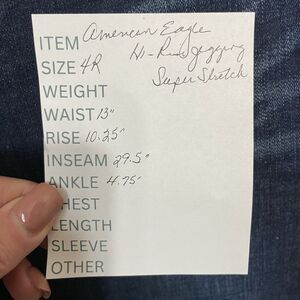 ITEM American Eagle
SIZE 4R Hi-Rise Jegging
WEIGHT Super Stretch
WAIST 13"
RISE 10.25"
INSEAM 29.5"
ANKLE 4.75"
CHEST
LENGTH
SLEEVE
OTHER